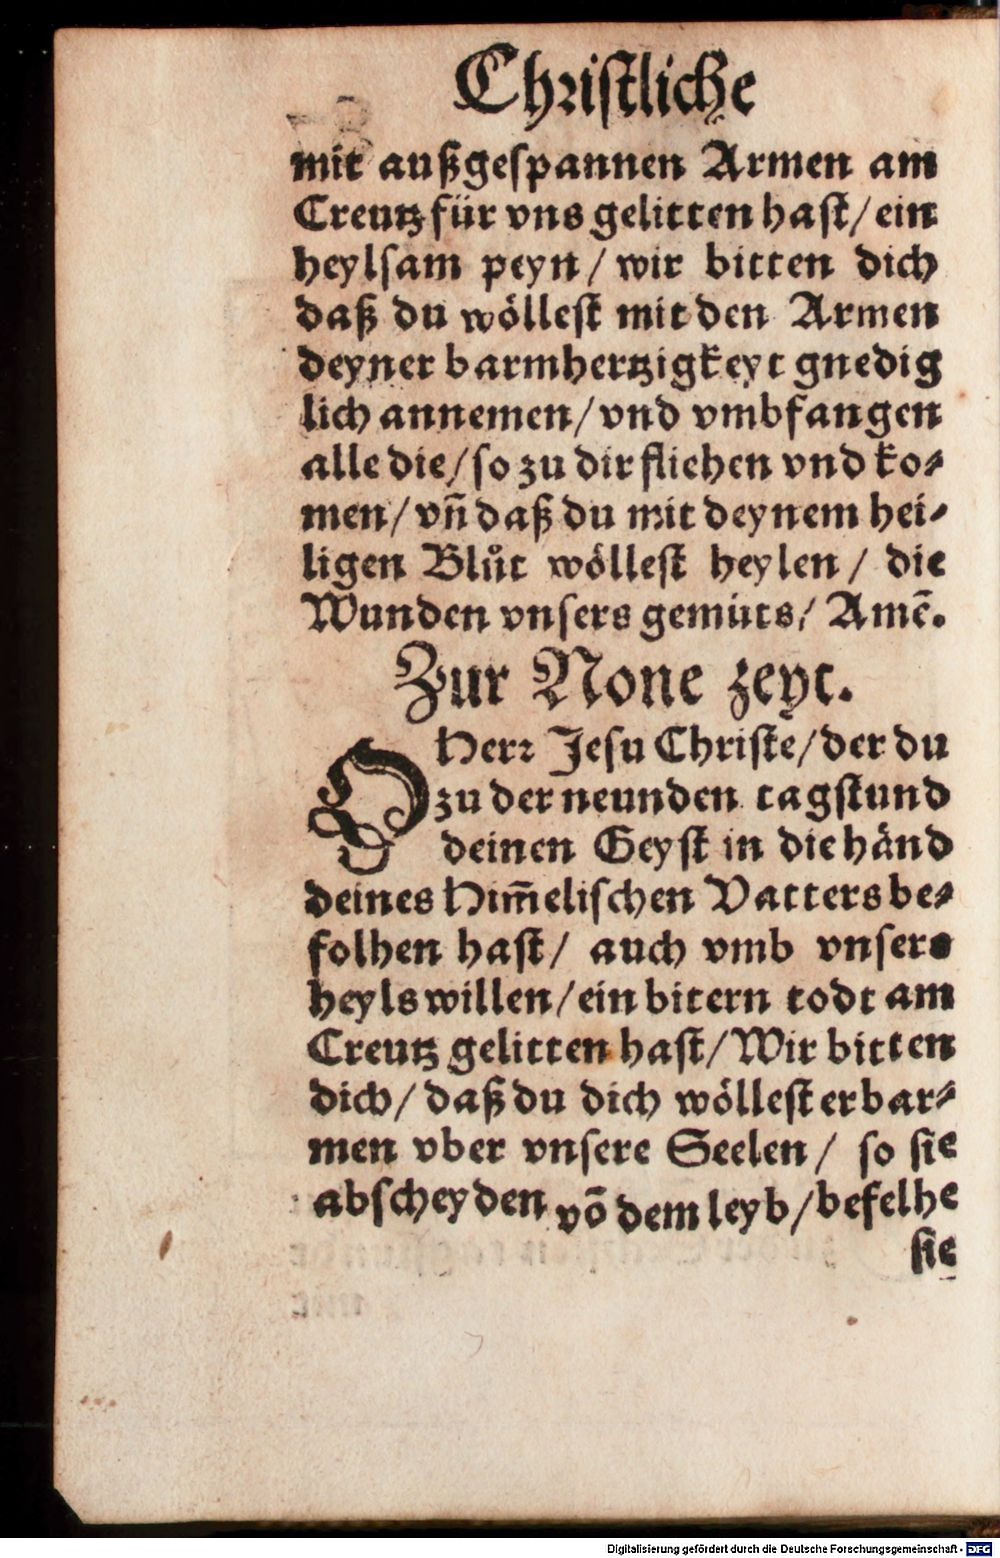 Christliche
mit außgespannen Armen am
Creutz für vns gelitten hast/ ein
heylsam peyn/ wir bitten dich
daß du wöllest mit den Armen
deyner barmhertzigkeyt gnedig
lich annemen/ vnd vmbfangen
alle die/ so zu dir fliehen vnd ko⸗
men/ vñ daß du mit deynem hei⸗
ligen Blůt wöllest heylen/ die
Wunden vnsers gemüts/ Amẽ.
Zur None zeyt.
O Herr Jesu Christe/ der du
zu der neunden tagstund
deinen Geyst in die händ
deines Him̃elischen Vatters be⸗
folhen hast/ auch vmb vnsers
heyls willen/ ein bitern todt am
Creutz gelitten hast/ Wir bitten
dich/ daß du dich wöllest erbar⸗
men vber vnsere Seelen/ so sie
abscheyden võ dem leyb/ befelhe
sie
Digitalisierung gefördert durch die Deutsche Forschungsgemeinschaft - DFG